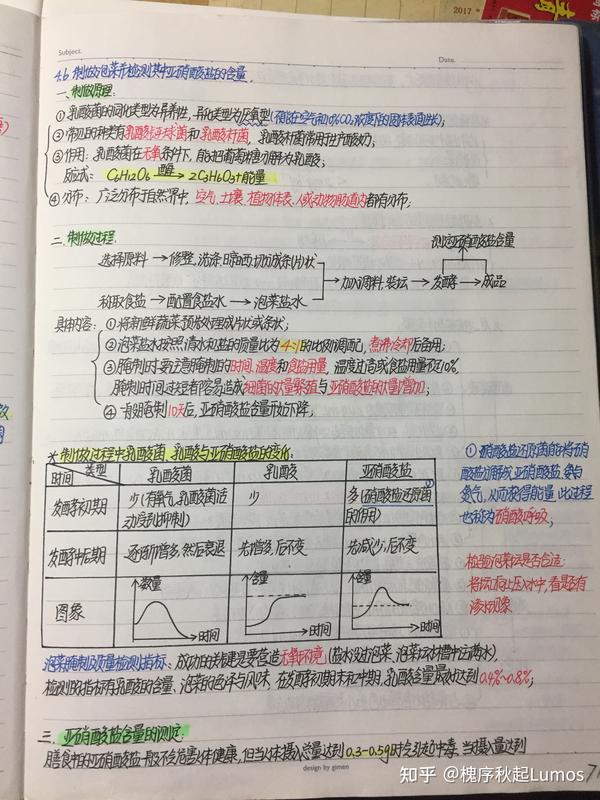 2017
Subject.
Date.
4.6 制做泡菜并检测其中亚硝酸盐的含量
一、制做原理:
① 乳酸菌的同化类型为异养性，异化类型为厌氧型
② 常见的种类有乳酸链球菌和乳酸杆菌，乳酸杆菌常用于生产酸奶;
③ 作用: 乳酸菌在无氧条件下，能将葡萄糖分解为乳酸;
反应式: C6H12O6 酶 → 2C3H6O3+能量
④ 分布: 广泛分布于自然界中，空气、土壤、植物体表、人或动物肠道内都有分布;
二、制做过程:
测定亚硝酸盐含量
选择原料 → 修整、洗涤、晾晒、切成条/片状
→ 加入调料、装坛 → 发酵 → 成品
称取食盐 → 配置食盐水 → 泡菜盐水
具体内容: ① 将新鲜蔬菜预先处理成片状或条状;
② 泡菜盐水按照清水和盐的质量比为4:1的比例调配，煮沸冷却后备用;
③ 腌制时要注意腌制的时间、温度和食盐用量，温度过高或食盐用量低于10%、
腌制时间过短者容易造成细菌的大量繁殖与亚硝酸盐的大量增加;
④ 有明腌制10天后，亚硝酸盐含量开始下降;
☆ 制做过程中乳酸菌、乳酸与亚硝酸盐的变化:
时间 类型 乳酸菌 乳酸 亚硝酸盐
发酵初期 少(有氧气,乳酸菌活动受到抑制) 少 多(硝酸盐还原菌①的作用)
发酵中后期 逐渐增多，然后衰退 先增多，后不变 先减少，后不变
图象 数量 时间 含量 时间 含量 时间
① 硝酸盐还原菌能将硝
酸盐分解成亚硝酸盐、氨与
氮气，从而获得能量，此过程
也称为硝酸呼吸;
检验泡菜坛是否合适:
将坛口向上压入水中，看是否有
渗水现象
泡菜腌制及质量检测指标: 成功的关键是要营造无氧环境(盐水没过泡菜、泡菜坛水槽中注满水)，
检测的指标有乳酸的含量、泡菜的色泽与风味，在发酵初期末和中期，乳酸含量最好达到0.4%~0.8%;
三、亚硝酸盐含量的测定:
膳食中的亚硝酸盐一般不会危害人体健康，但当人体摄入总量达到0.3-0.5g时会引起中毒、当摄入量达到
design by gimen
知乎 @槐序秋起Lumos